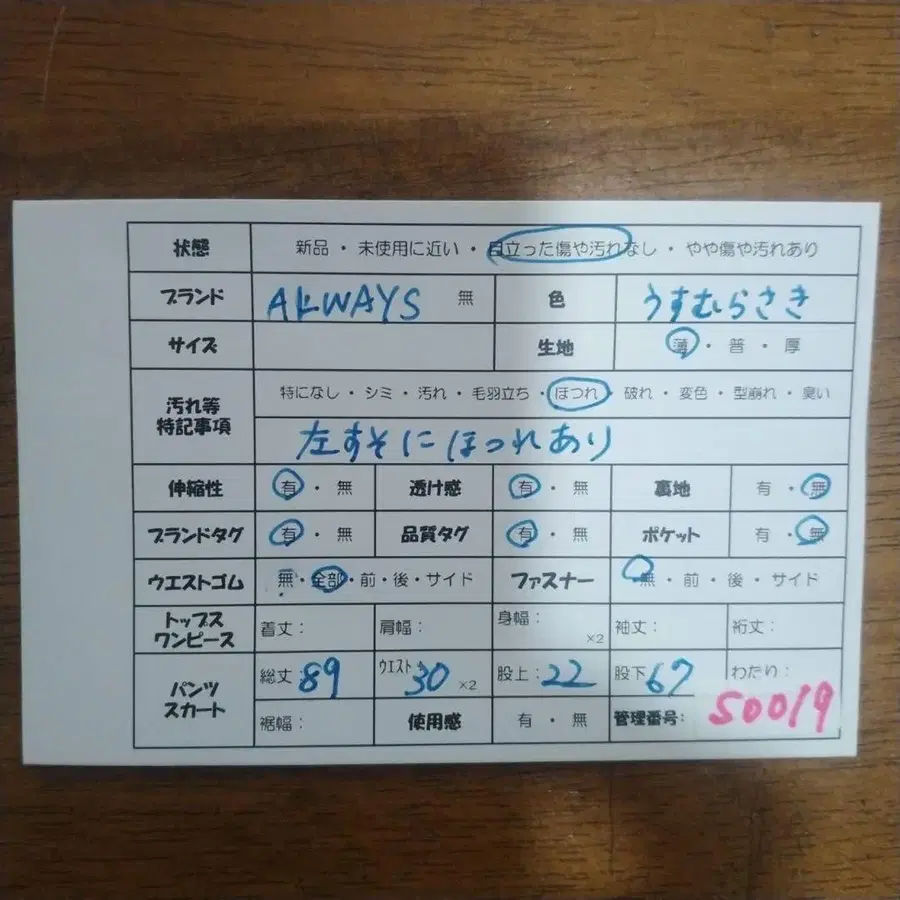 状態 新品 ・ 未使用に近い ・ 目立った傷や汚れなし ・ やや傷や汚れあり
ブランド ALWAYS 無 色 うすむらさき
サイズ 生地 薄 ・ 普 ・ 厚
汚れ等 特記事項 特になし ・ シミ ・ 汚れ ・ 毛羽立ち ・ ほつれ ・ 破れ ・ 変色 ・ 型崩れ ・ 臭い
左すそにほつれあり
伸縮性 有 ・ 無 透け感 有 ・ 無 裏地 有 ・ 無
ブランドタグ 有 ・ 無 品質タグ 有 ・ 無 ポケット 有 ・ 無
ウエストゴム 無 ・ 全部 ・ 前 ・ 後 ・ サイド ファスナー 無 ・ 前 ・ 後 ・ サイド
トップス ワンピース 着丈: 肩幅: 身幅: ×2 袖丈: 裄丈:
パンツ スカート 総丈 89 ウエスト: 30 ×2 股上: 22 股下 67 わたり:
裾幅: 使用感 有 ・ 無 管理番号: S0019